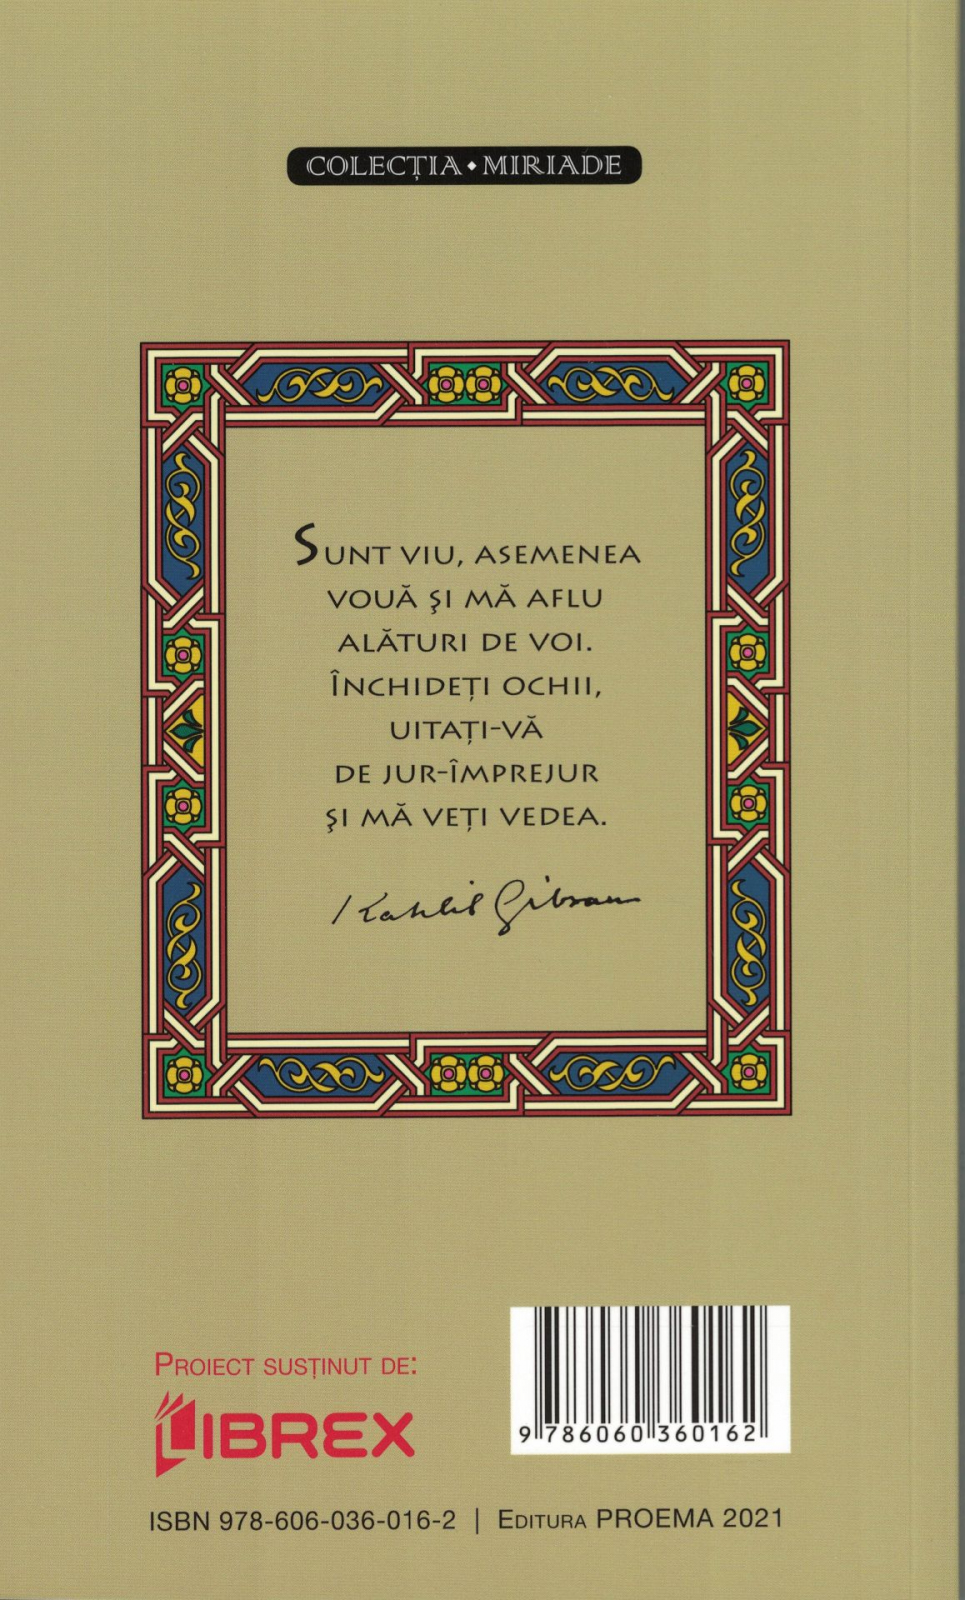 COLECȚIA • MIRIADE
SUNT VIU, ASEMENEA
VOUĂ ŞI MĂ AFLU
ALĂTURI DE VOI.
ÎNCHIDEȚI OCHII,
UITAȚI-VĂ
DE JUR-ÎMPREJUR
ŞI MĂ VEȚI VEDEA.
Kahlil Gibran
PROIECT SUSȚINUT DE:
LIBREX
9 786060 360162
ISBN 978-606-036-016-2 | EDITURA PROEMA 2021